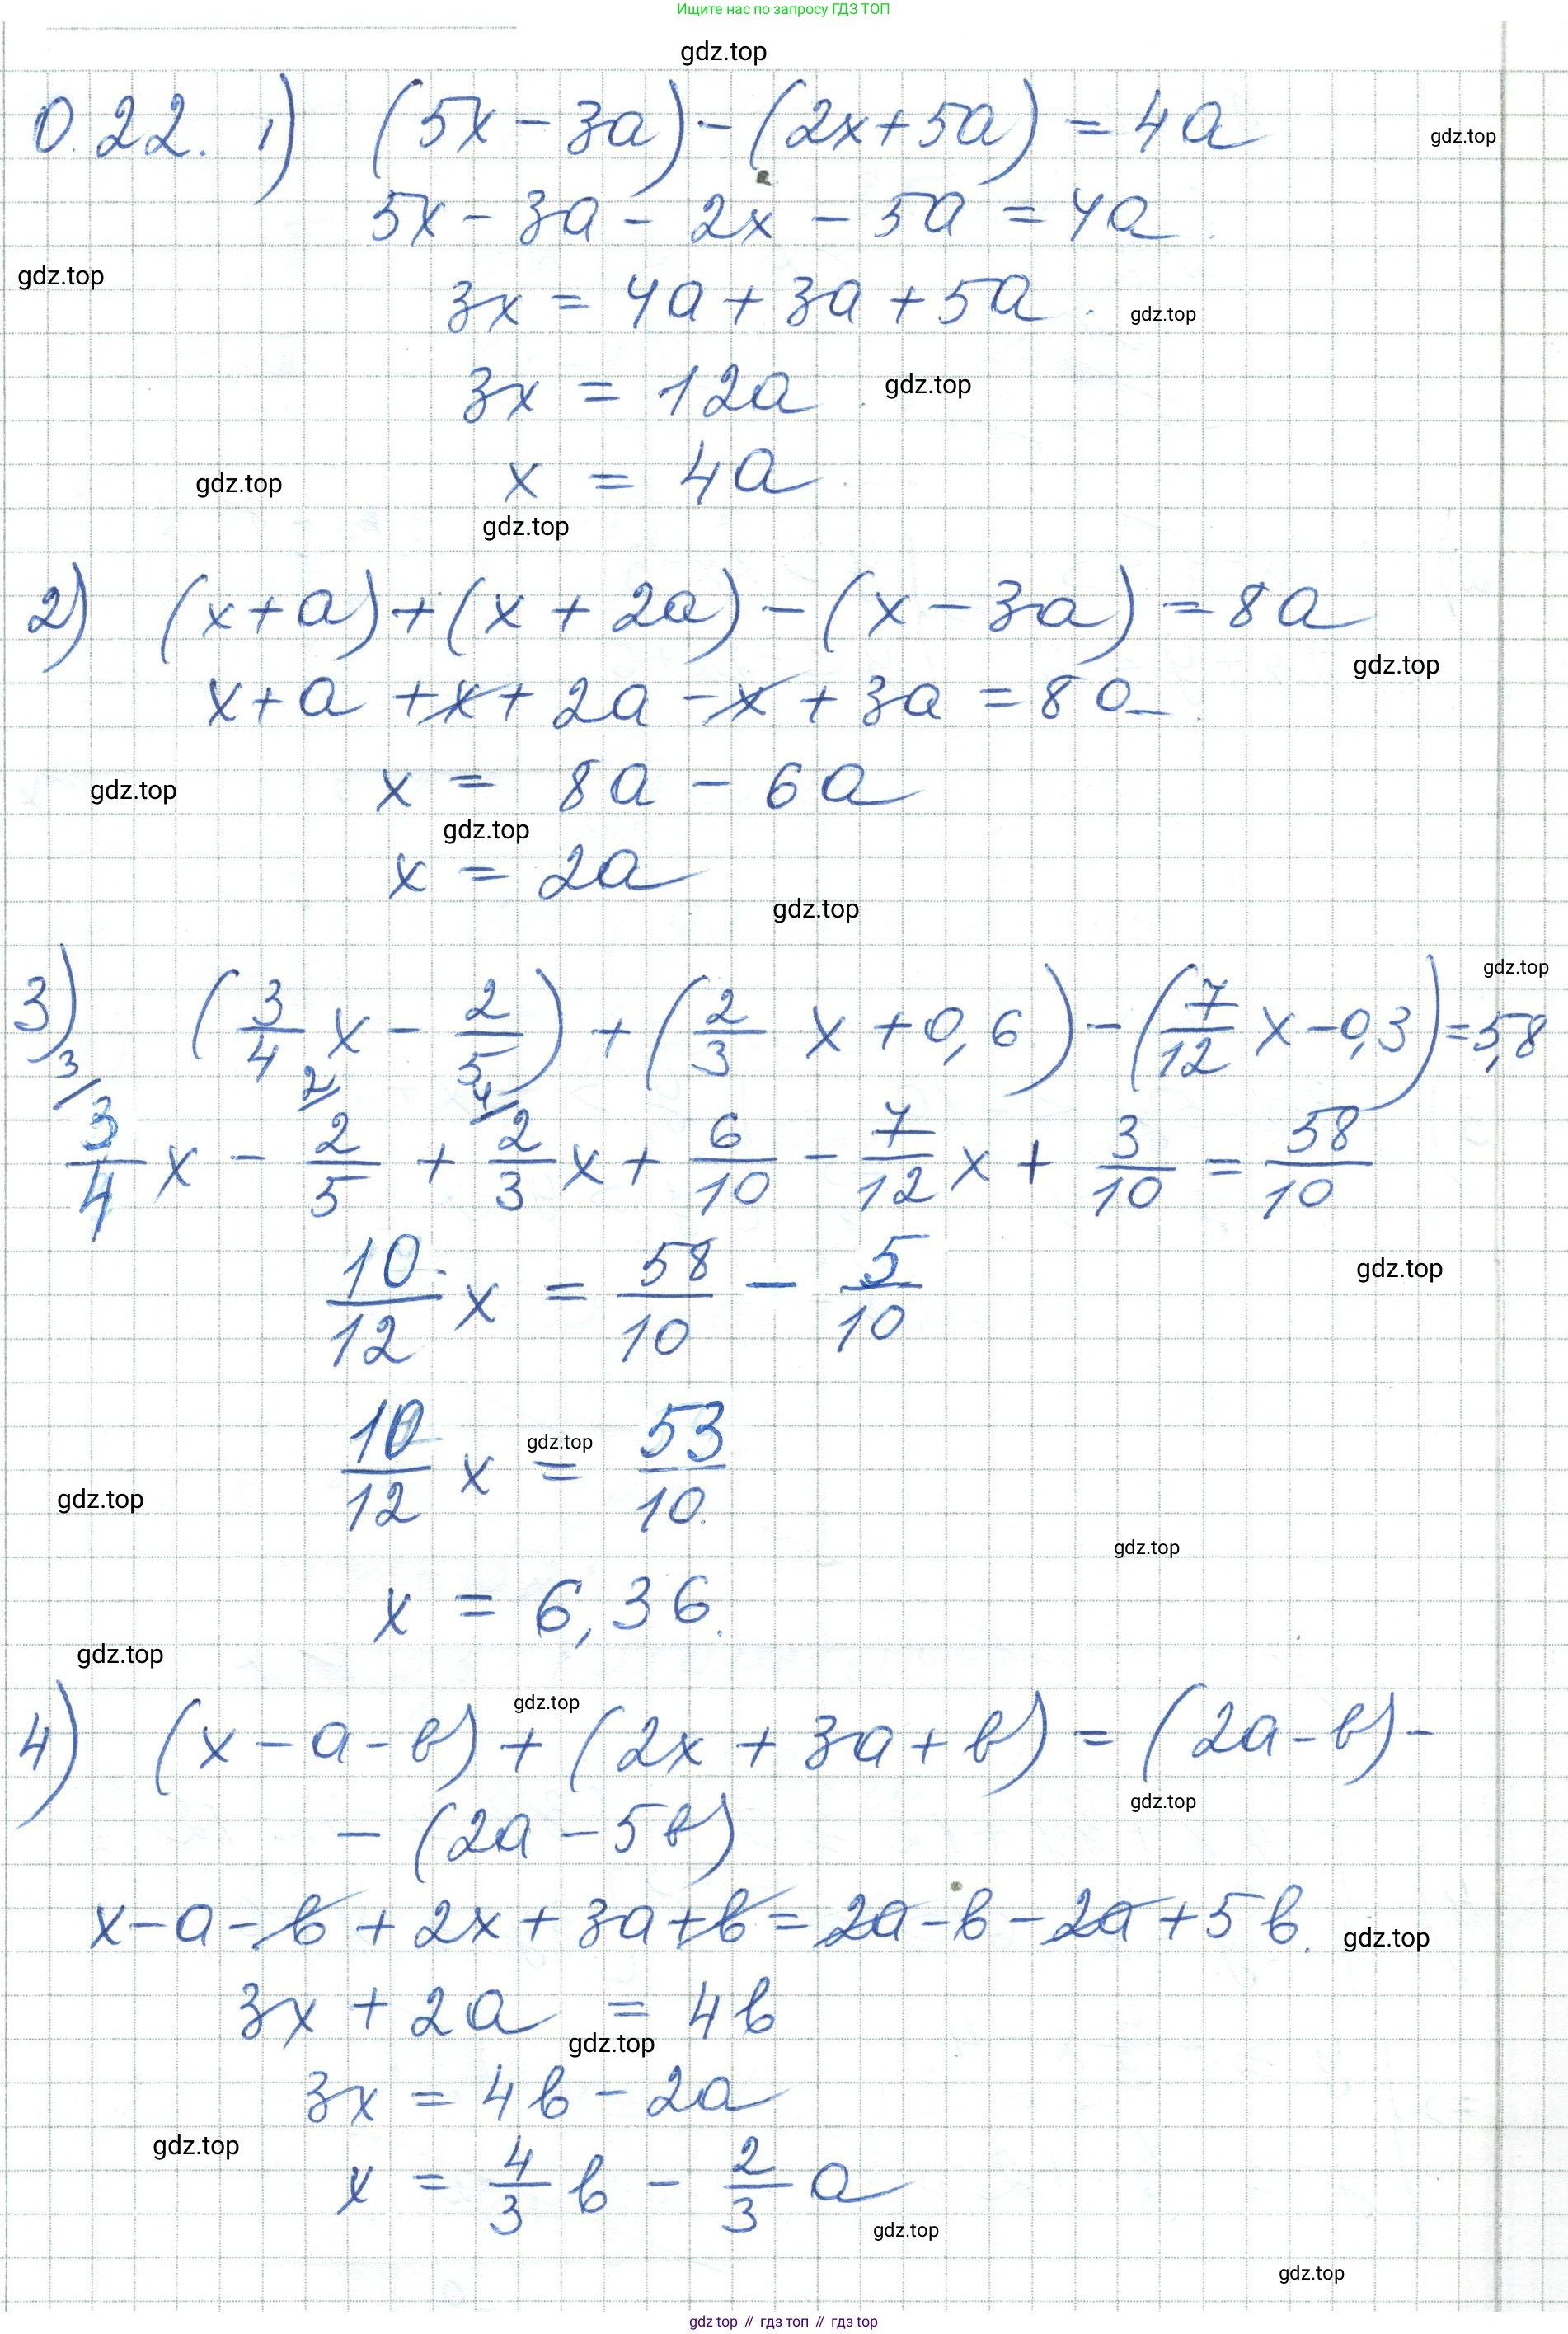 Ищите нас по запросу ГДЗ ТОП
gdz.top
0.22. 1) (5x - 3a) - (2x + 5a) = 4a
gdz.top
5x - 3a - 2x - 5a = 4a
gdz.top
3x = 4a + 3a + 5a
gdz.top
3x = 12a
gdz.top
x = 4a
gdz.top
gdz.top
2) (x + a) + (x + 2a) - (x - 3a) = 8a
gdz.top
x + a + x + 2a - x + 3a = 8a
x = 8a - 6a
gdz.top
gdz.top
x = 2a
gdz.top
gdz.top
3) (3/4 x - 2/5) + (2/3 x + 0,6) - (7/12 x - 0,3) = 5,8
3/ 2/ 4/
3/4 x - 2/5 + 2/3 x + 6/10 - 7/12 x + 3/10 = 58/10
10/12 x = 58/10 - 5/10
gdz.top
10/12 x = 53/10
gdz.top
gdz.top
gdz.top
x = 6,36
gdz.top
gdz.top
4) (x - a - b) + (2x + 3a + b) = (2a - b) -
gdz.top
- (2a - 5b)
x - a - b + 2x + 3a + b = 2a - b - 2a + 5b
gdz.top
3x + 2a = 4b
gdz.top
3x = 4b - 2a
gdz.top
x = 4/3 b - 2/3 a
gdz.top
gdz.top
gdz top // гдз топ // гдз top